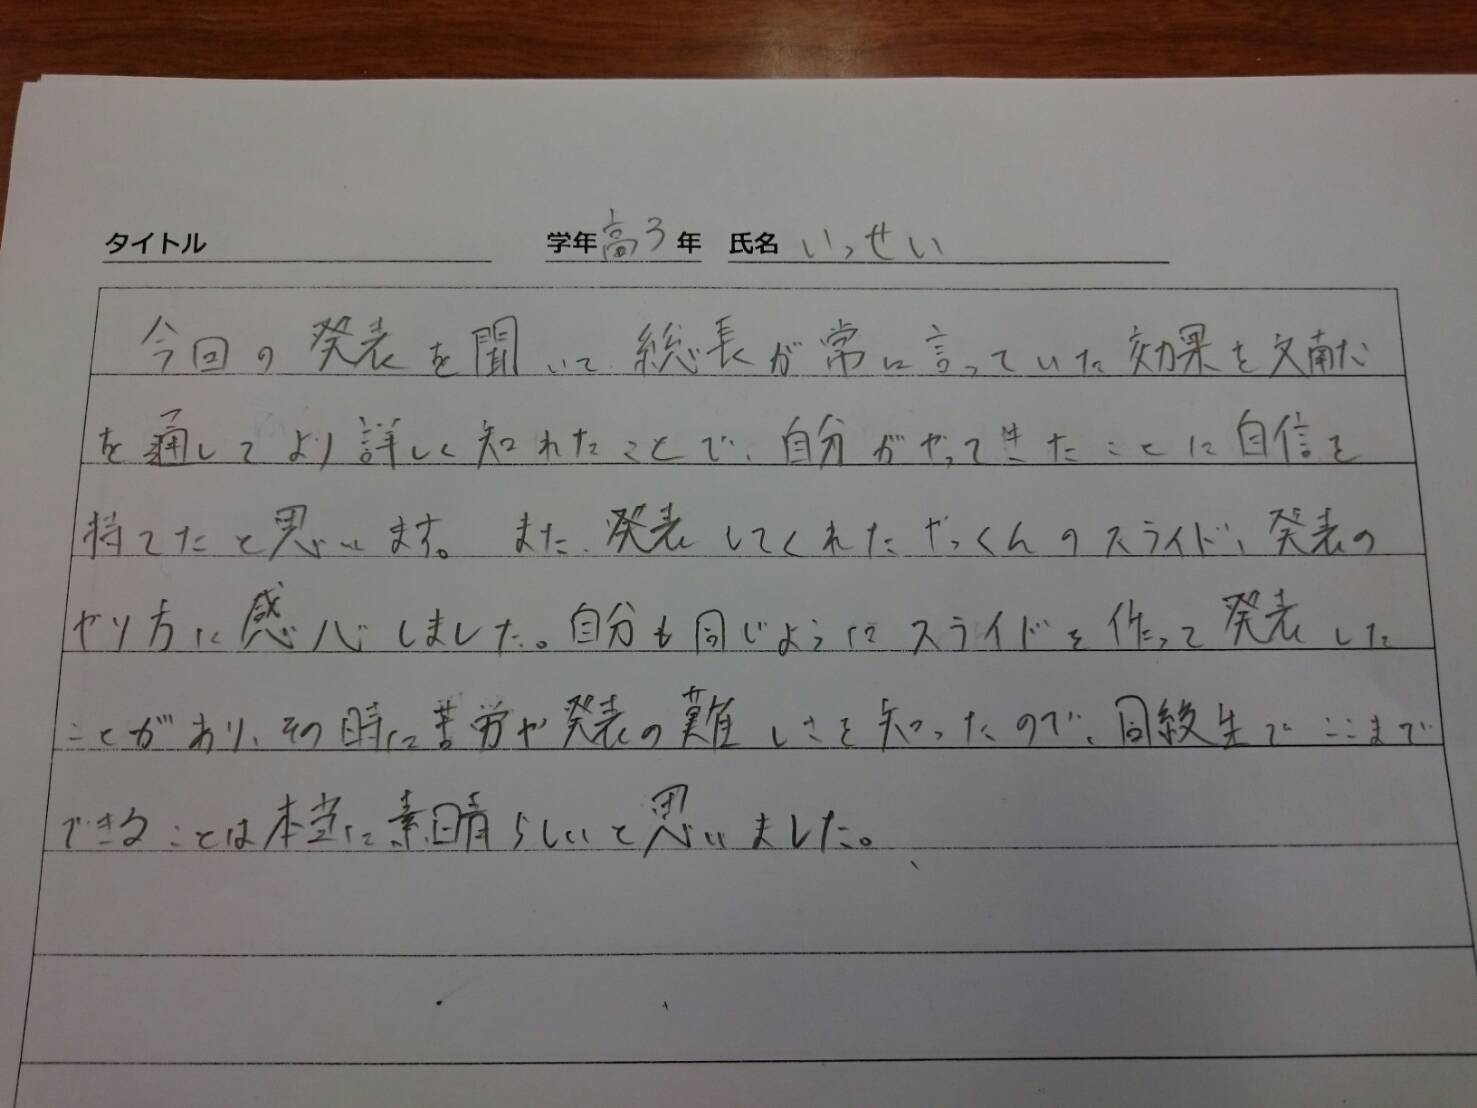 タイトル 学年 高3 年 氏名 いっせい
今回の発表を聞いて総長が常に言っていた効果を文献
を通してより詳しく知れたことで、自分がやってきたことに自信を
持てたと思います。また、発表してくれたやっくんのスライド、発表の
やり方に感心しました。自分も同じようにスライドを作って発表した
ことがあり、その時に苦労や発表の難しさを知ったので、同級生でここまで
できることは本当に素晴らしいと思いました。